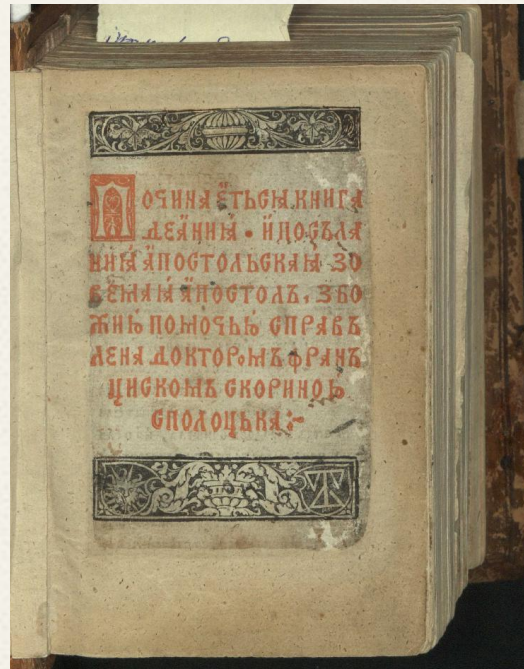 Починаеть сꙗ книга
деѧниꙗ • и посъла
ниꙗ апостольскаꙗ зо
вемаꙗ апостолъ, з бо
жию помочью справъ
лена доктором фран
циском скориною
с полоцька:~